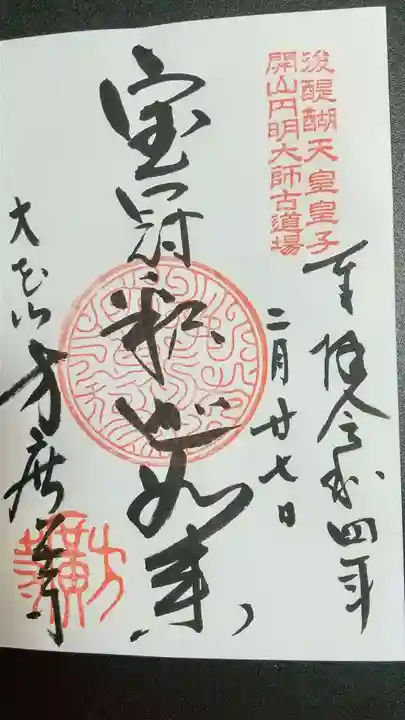 後醍醐天皇皇子
開山円明大師古道場
奉拝令和四年
二月廿七日
宝冠釈迦如来
大本山方広寺